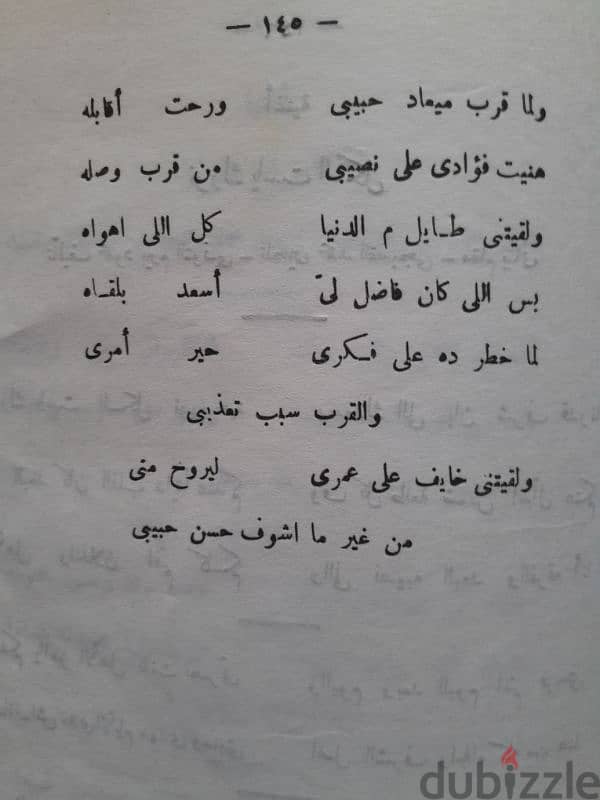 — ١٤٥ —
ولما قرب ميعاد حبيبى ورحت أقابله
هنيت فؤادى على نصيبى من قرب وصله
ولقيتنى طـايل م الدنيا كل اللى اهواه
بس اللى كان فاضل لىّ أسعد بلقـاه
لما خطر ده على فـكرى حير أمرى
والقرب سبب تعذيبى
ولقيتنى خايف على عمرى ليروح منى
من غير ما اشوف حسن حبيبى
dubizzle